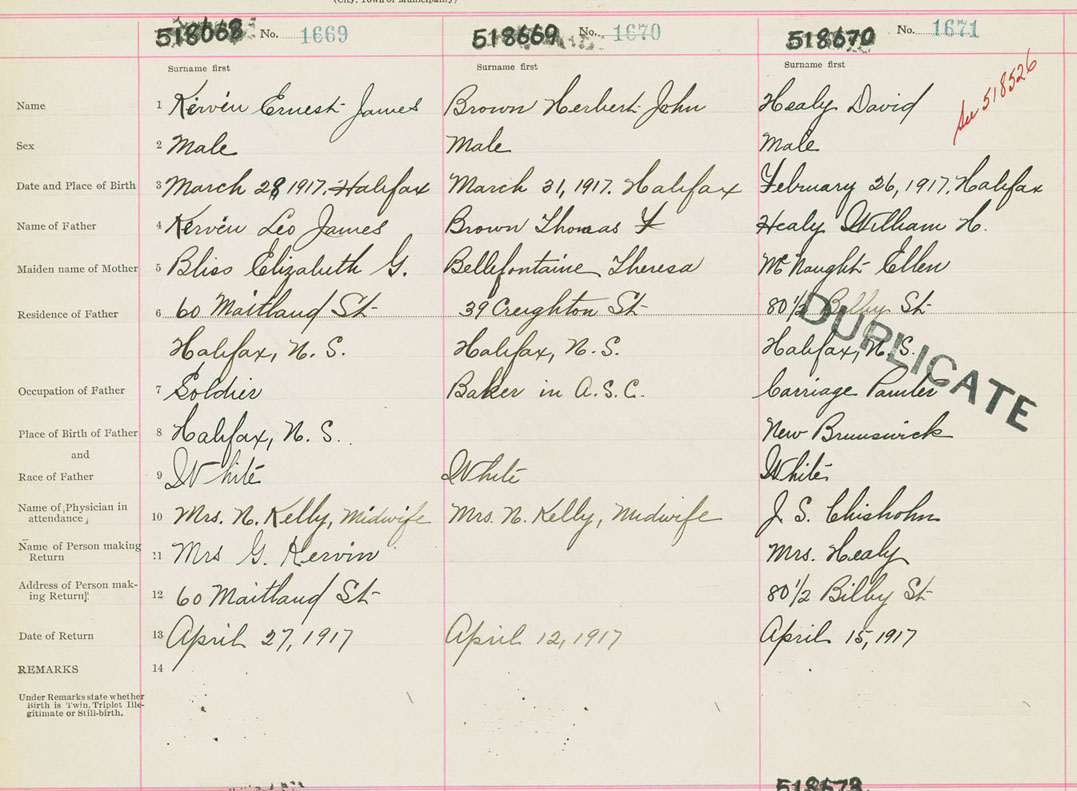 (City, Town or Municipality)
518668 No. 1669
518669 No. 1670
518670 No. 1671
Surname first
Surname first
Surname first
See 518526
Name 1 Kervin Ernest James
Brown Herbert John
Healy David
Sex 2 Male
Male
Male
Date and Place of Birth 3 March 28, 1917. Halifax
March 31, 1917. Halifax
February 26, 1917. Halifax
Name of Father 4 Kervin Leo James
Brown Thomas F
Healy William H.
Maiden name of Mother 5 Bliss Elizabeth G.
Bellefontaine Theresa
McNaught Ellen
Residence of Father 6 60 Maitland St
39 Creighton St
80 1/2 Bilby St
Halifax, N.S.
Halifax, N.S.
Halifax, N.S.
DUPLICATE
Occupation of Father 7 Soldier
Baker in A.S.C.
Carriage Painter
Place of Birth of Father 8 Halifax, N.S.
New Brunswick
and
Race of Father 9 White
White
White
Name of Physician in
attendance 10 Mrs. N. Kelly, Midwife
Mrs. N. Kelly, Midwife
J. S. Chisholm
Name of Person making
Return 11 Mrs G. Kervin
Mrs. Healy
Address of Person mak-
ing Return 12 60 Maitland St
80 1/2 Bilby St
Date of Return 13 April 27, 1917
April 12, 1917
April 15, 1917
REMARKS 14
Under Remarks state whether
Birth is Twin, Triplet Ille-
gitimate or Still-birth.
518673